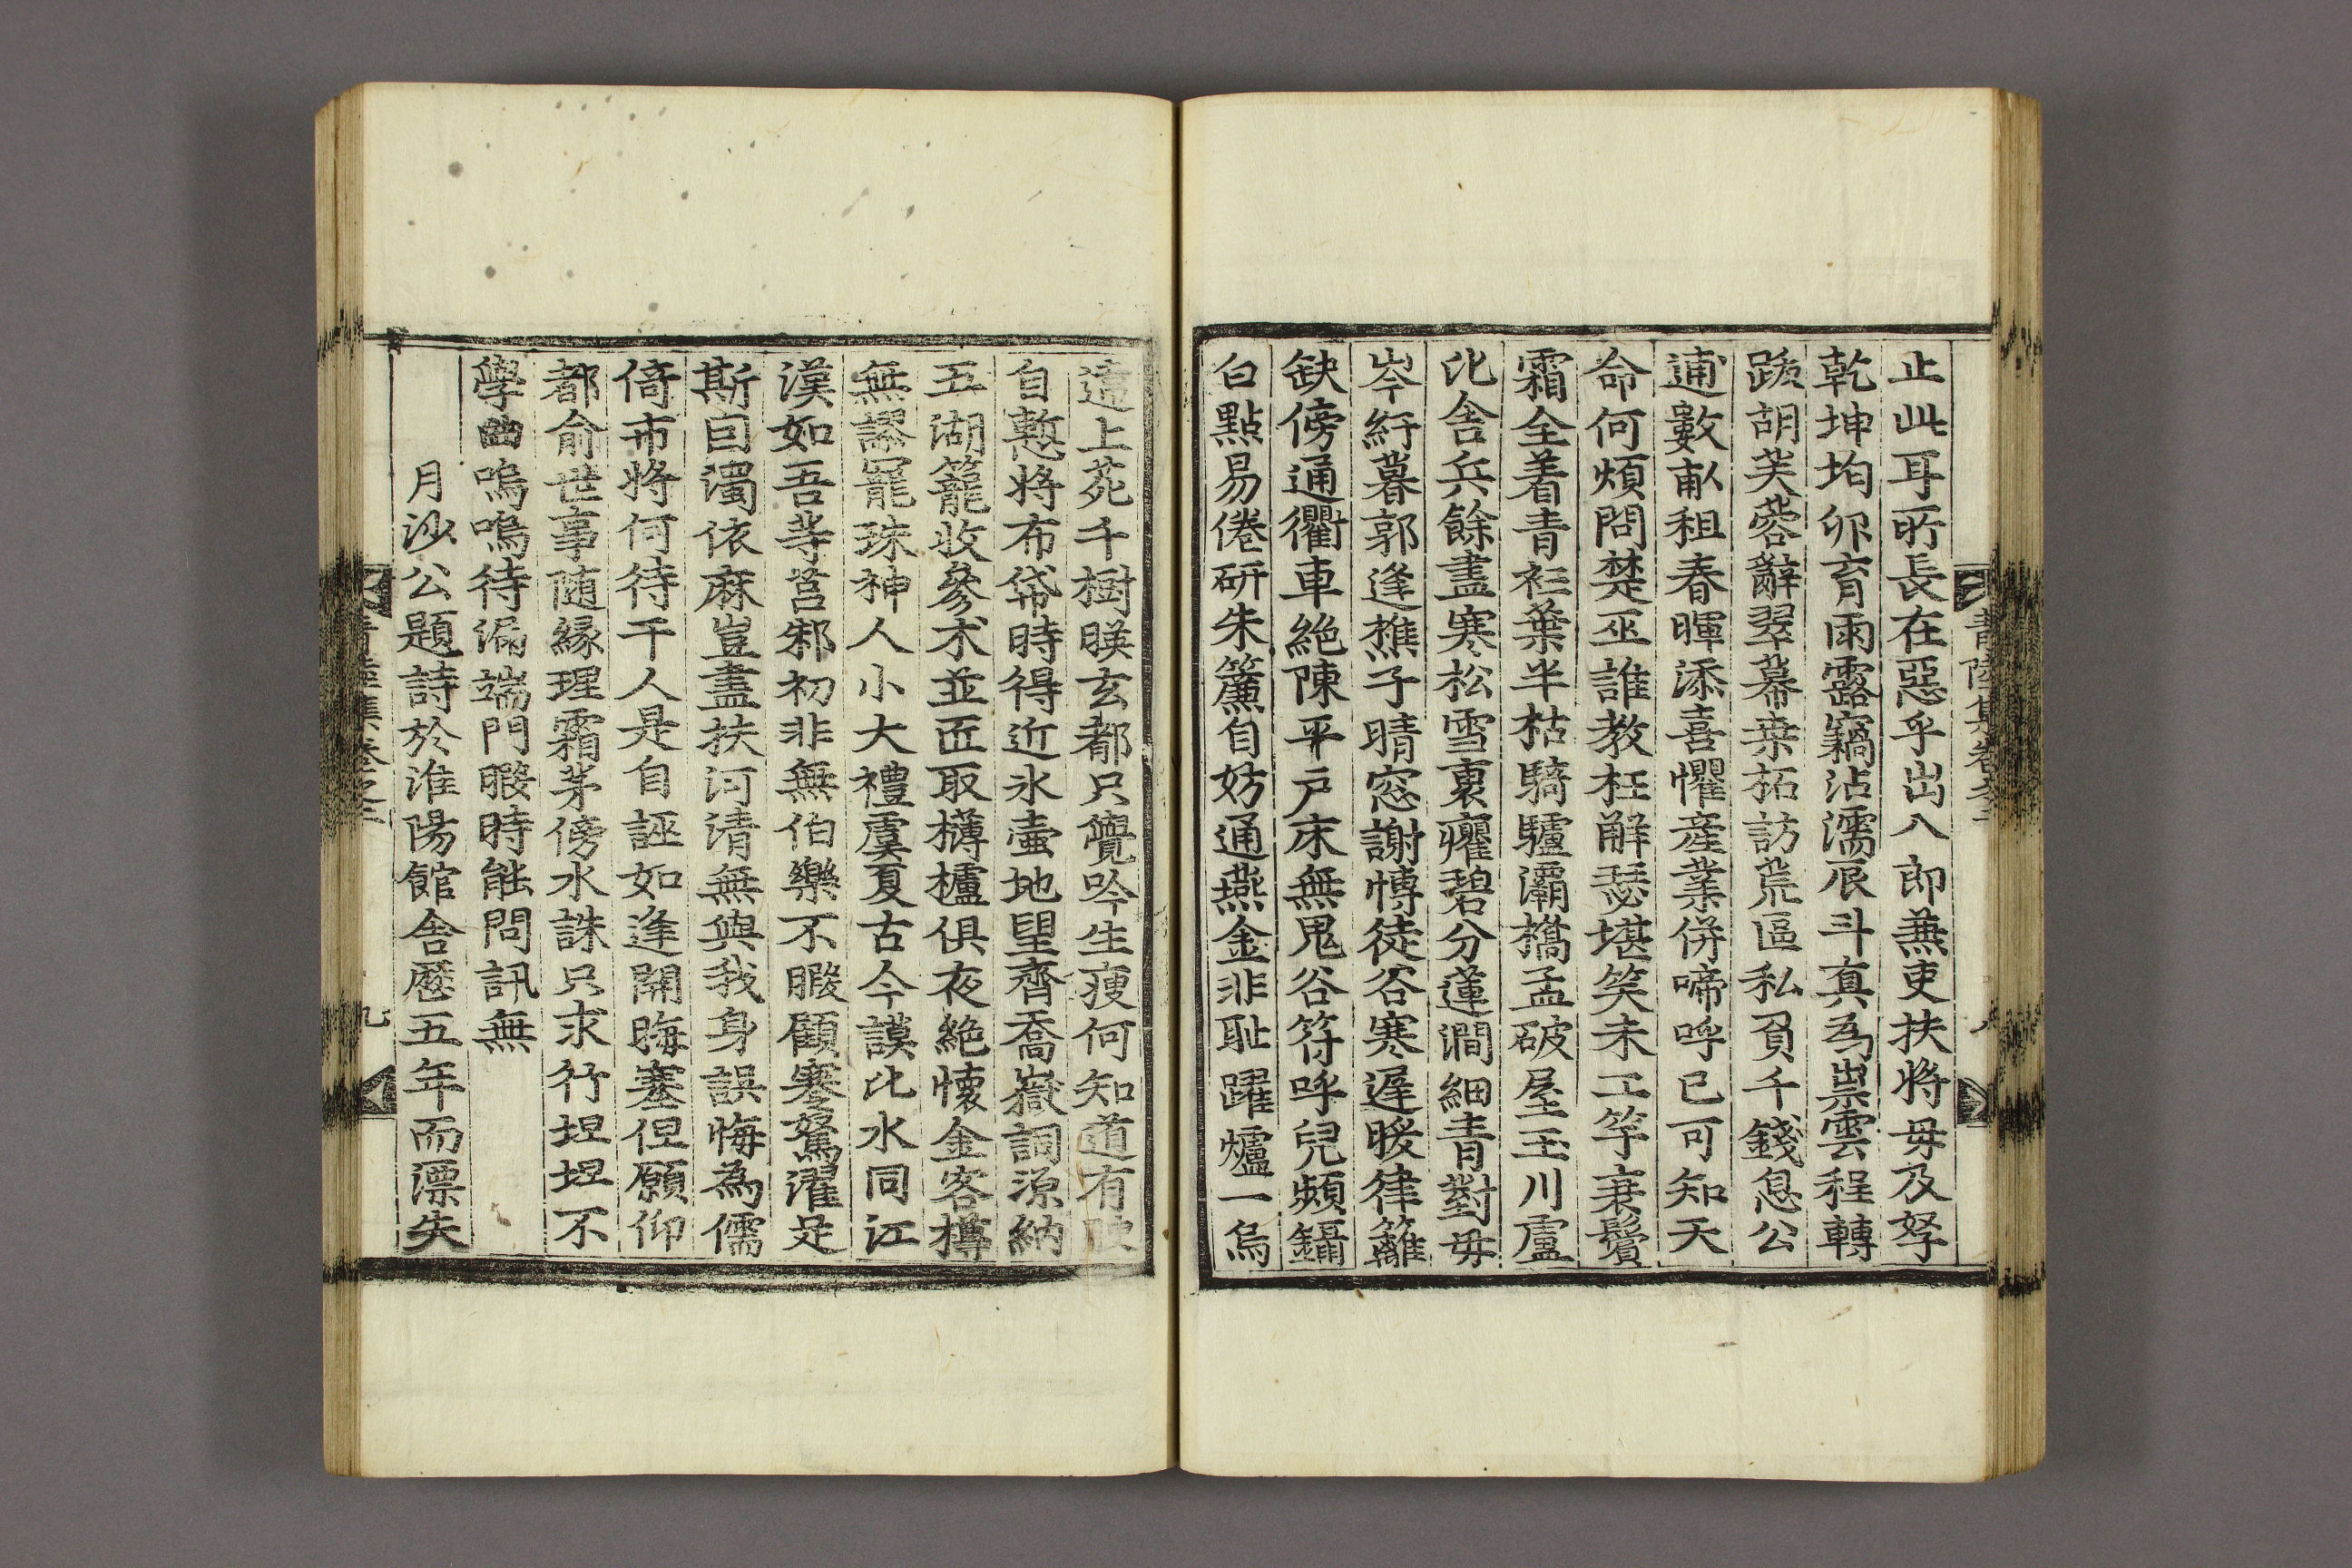 止此耳所長在惡乎出八郎兼吏扶將毋及孥
乾坤均卵育雨露竊沾濡辰斗眞爲祟雲程轉
跋胡芙蓉辭翠幕桒拓訪荒區私負千錢息公
逋數畝租春暉添喜懼產業倂啼呼已可知天
命何煩問楚巫誰教枉解瑟堪笑未工竽衰鬢
霜全着靑衫葉半枯騎驢灞橋孟破屋玉川盧
比舍兵餘盡寒松雪裏癯碧分蓮澗細靑對毋
岑紆暮郭逢樵子晴窓謝博徒谷寒遲暖律籬
缺傍通衢車絶陳平戶床無鬼谷符呼兒頻鑷
白點易倦研朱簾自妨通燕金非恥躍爐一烏
靑陸集卷之二
八
遶上苑千樹暎玄都只覺吟生瘦何知道有腴
自慙將布帒時得近氷壷地望齊喬嶽詞源納
五湖籠收參朮並匠取欂櫨俱夜絶懷金客樽
無謬寵珠神人小大禮虞夏古今謨比水同江
漢如吾等莒邾初非無伯樂不暇顧蹇駑濯足
斯曰濁依麻豈盡扶河淸無與我身誤悔為儒
倚市將何待千人是自誣如逢開晦塞但願仰
都俞世事随緣理霜茅傍水誅只求行坦坦不
學曲嗚嗚待漏端門暇時能問訊無
月沙公題詩於淮陽館舍歷五年而漂失
靑陸集卷之二
九